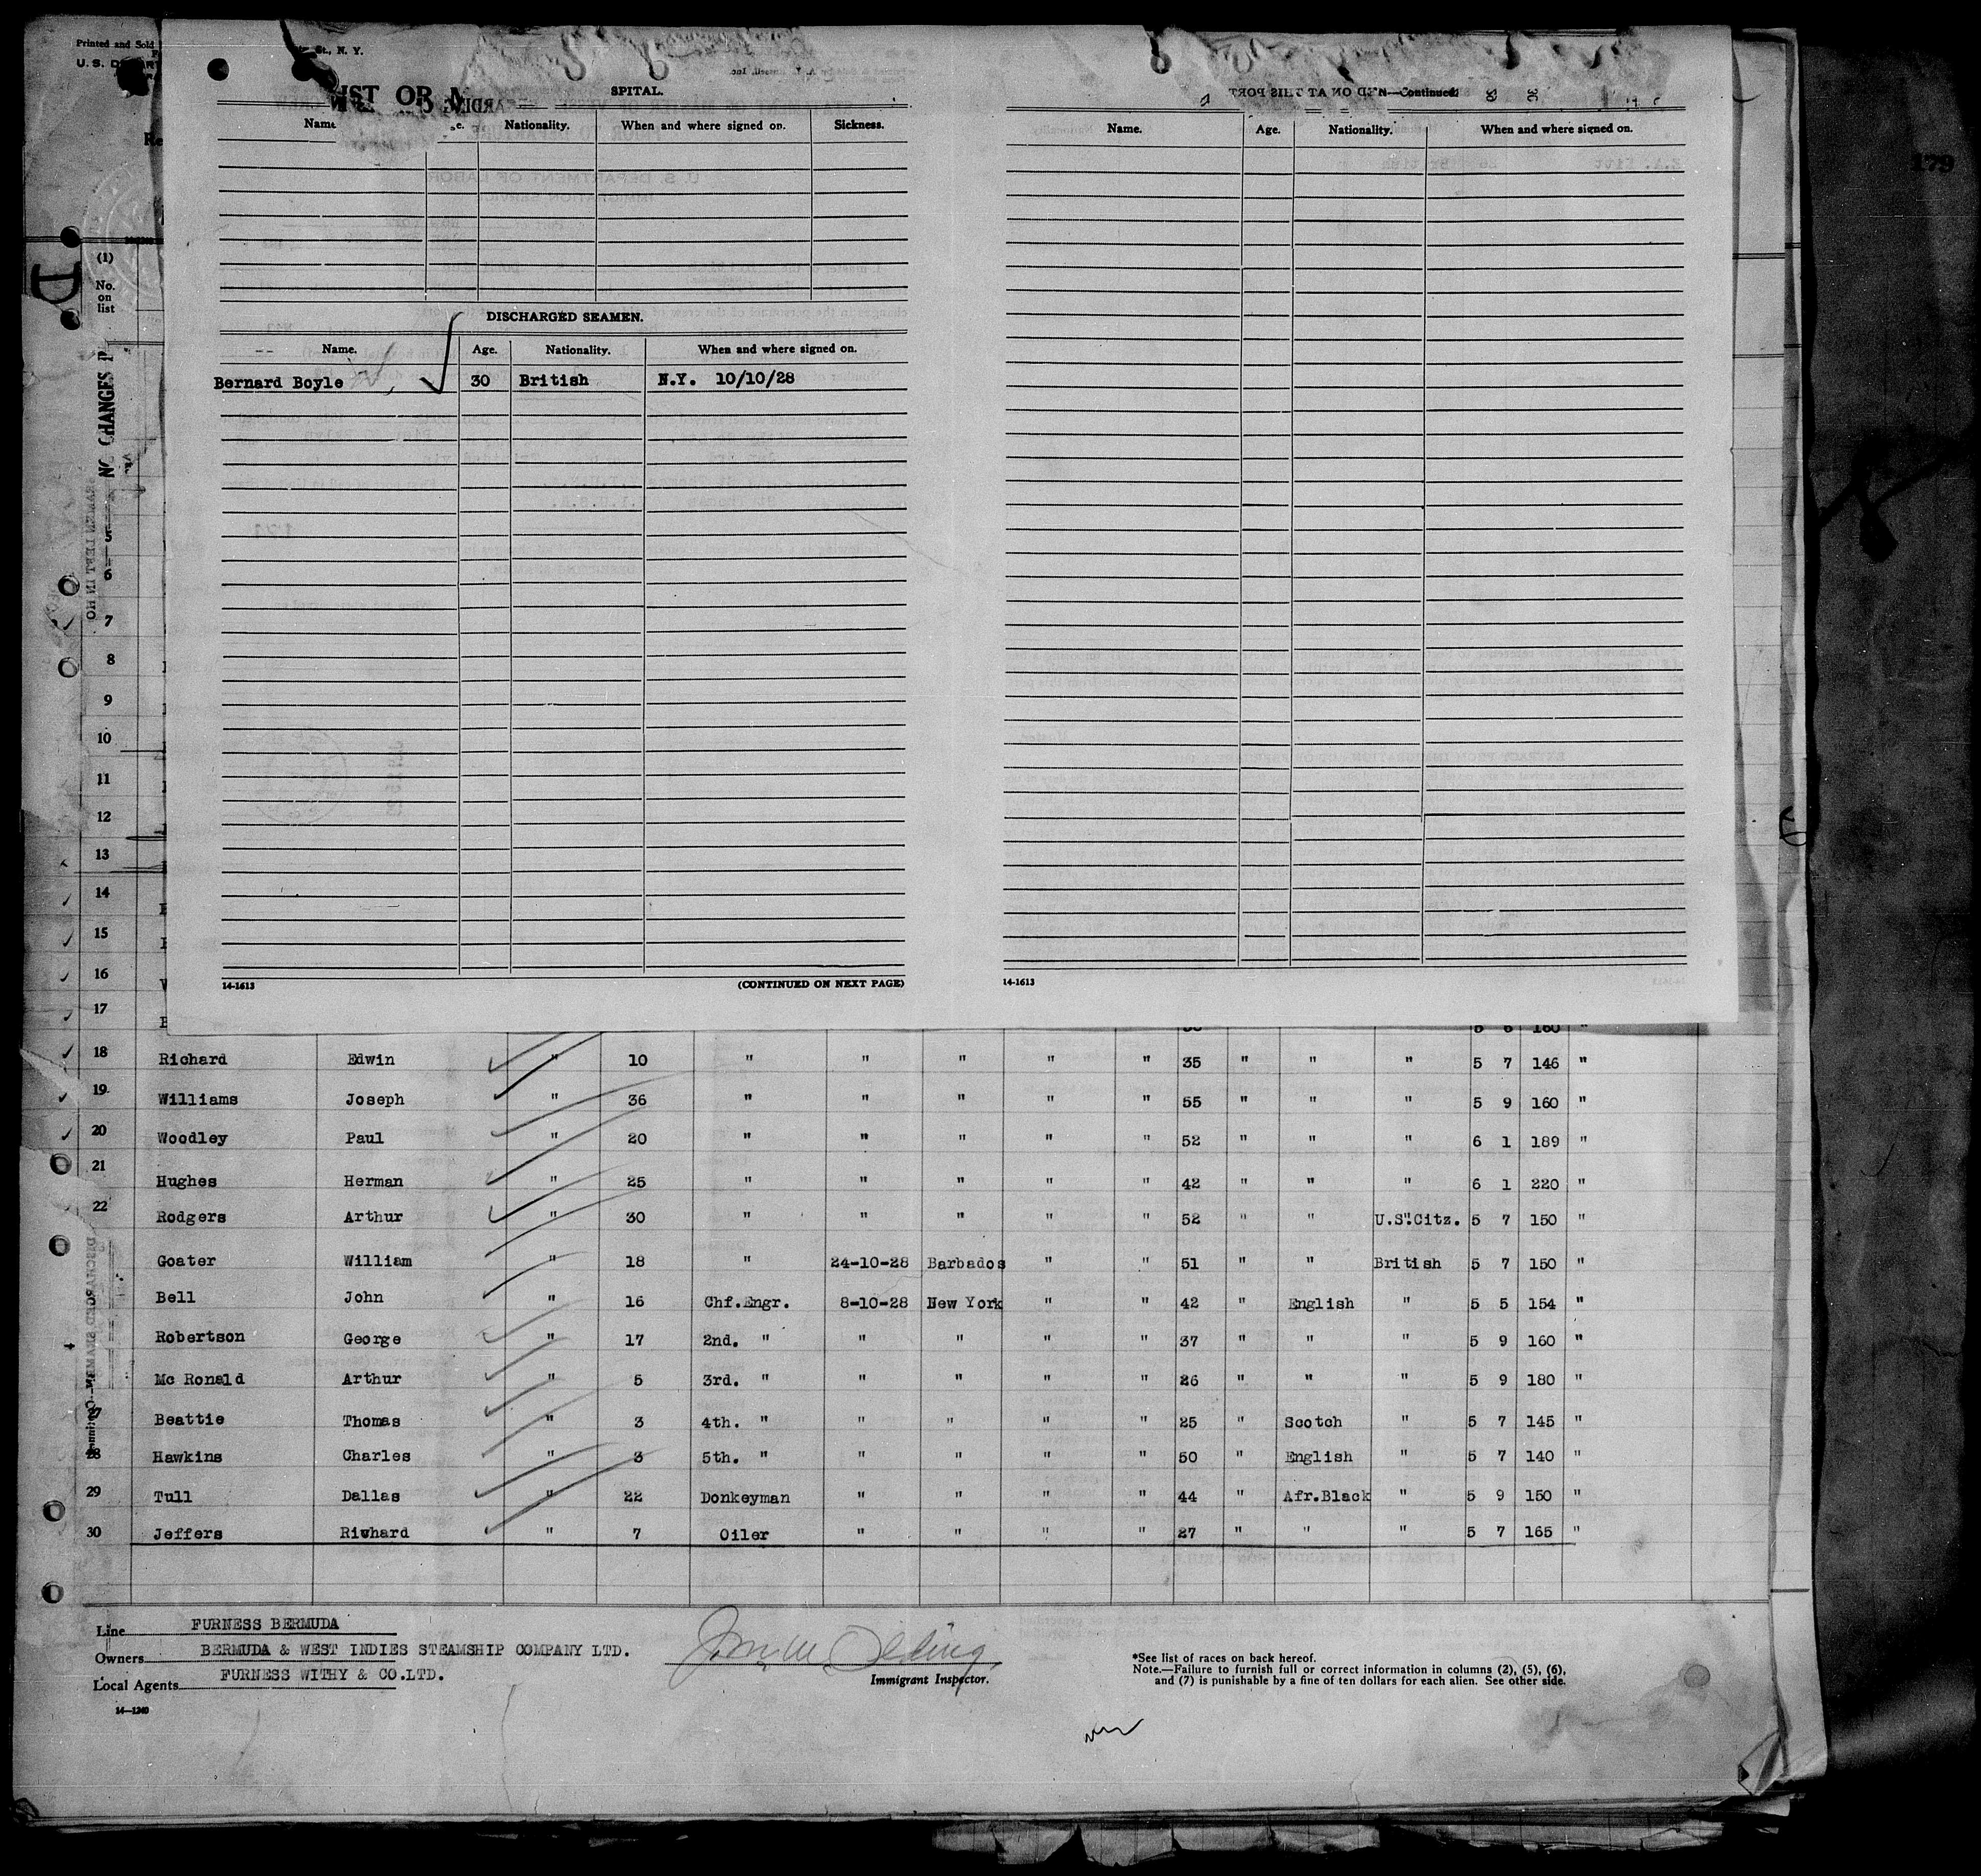 Printed and Sold
St., N. Y.
SPITAL.
Nationality. When and where signed on. Sickness.
DISCHARGED SEAMEN.
Name. Age. Nationality. When and where signed on.
Bernard Boyle 30 British N.Y. 10/10/28
14-1613 (CONTINUED ON NEXT PAGE)
—Continued
Name. Age. Nationality. When and where signed on.
14-1613
179
D
(1)
No.
on
list
CHANGES
5
6
7
8
9
10
11
12
13
14
15
16
17 5 6 160 "
18 Richard Edwin " 10 " " " " " 35 " " " 5 7 146 "
19 Williams Joseph " 36 " " " " " 55 " " " 5 9 160 "
20 Woodley Paul " 20 " " " " " 52 " " " 6 1 189 "
21 Hughes Herman " 25 " " " " " 42 " " " 6 1 220 "
22 Rodgers Arthur " 30 " " " " " 52 " " U.S".Citz. 5 7 150 "
Goater William " 18 " 24-10-28 Barbados " " 51 " " British 5 7 150 "
Bell John " 16 Chf.Engr. 8-10-28 New York " " 42 " English " 5 5 154 "
Robertson George " 17 2nd. " " " " " 37 " " " 5 9 160 "
Mc Ronald Arthur " 5 3rd. " " " " " 26 " " " 5 9 180 "
Beattie Thomas " 3 4th. " " " " " 25 " Scotch " 5 7 145 "
28 Hawkins Charles " 3 5th. " " " " " 50 " English " 5 7 140 "
29 Tull Dallas " 22 Donkeyman " " " " 44 " Afr.Black " 5 9 150 "
30 Jeffers Riwhard " 7 Oiler " " " " 27 " " " 5 7 165 "
Line FURNESS BERMUDA
Owners BERMUDA & WEST INDIES STEAMSHIP COMPANY LTD.
Local Agents FURNESS WITHY & CO.LTD.
14—1240
Immigrant Inspector.
*See list of races on back hereof.
Note.—Failure to furnish full or correct information in columns (2), (5), (6),
and (7) is punishable by a fine of ten dollars for each alien. See other side.